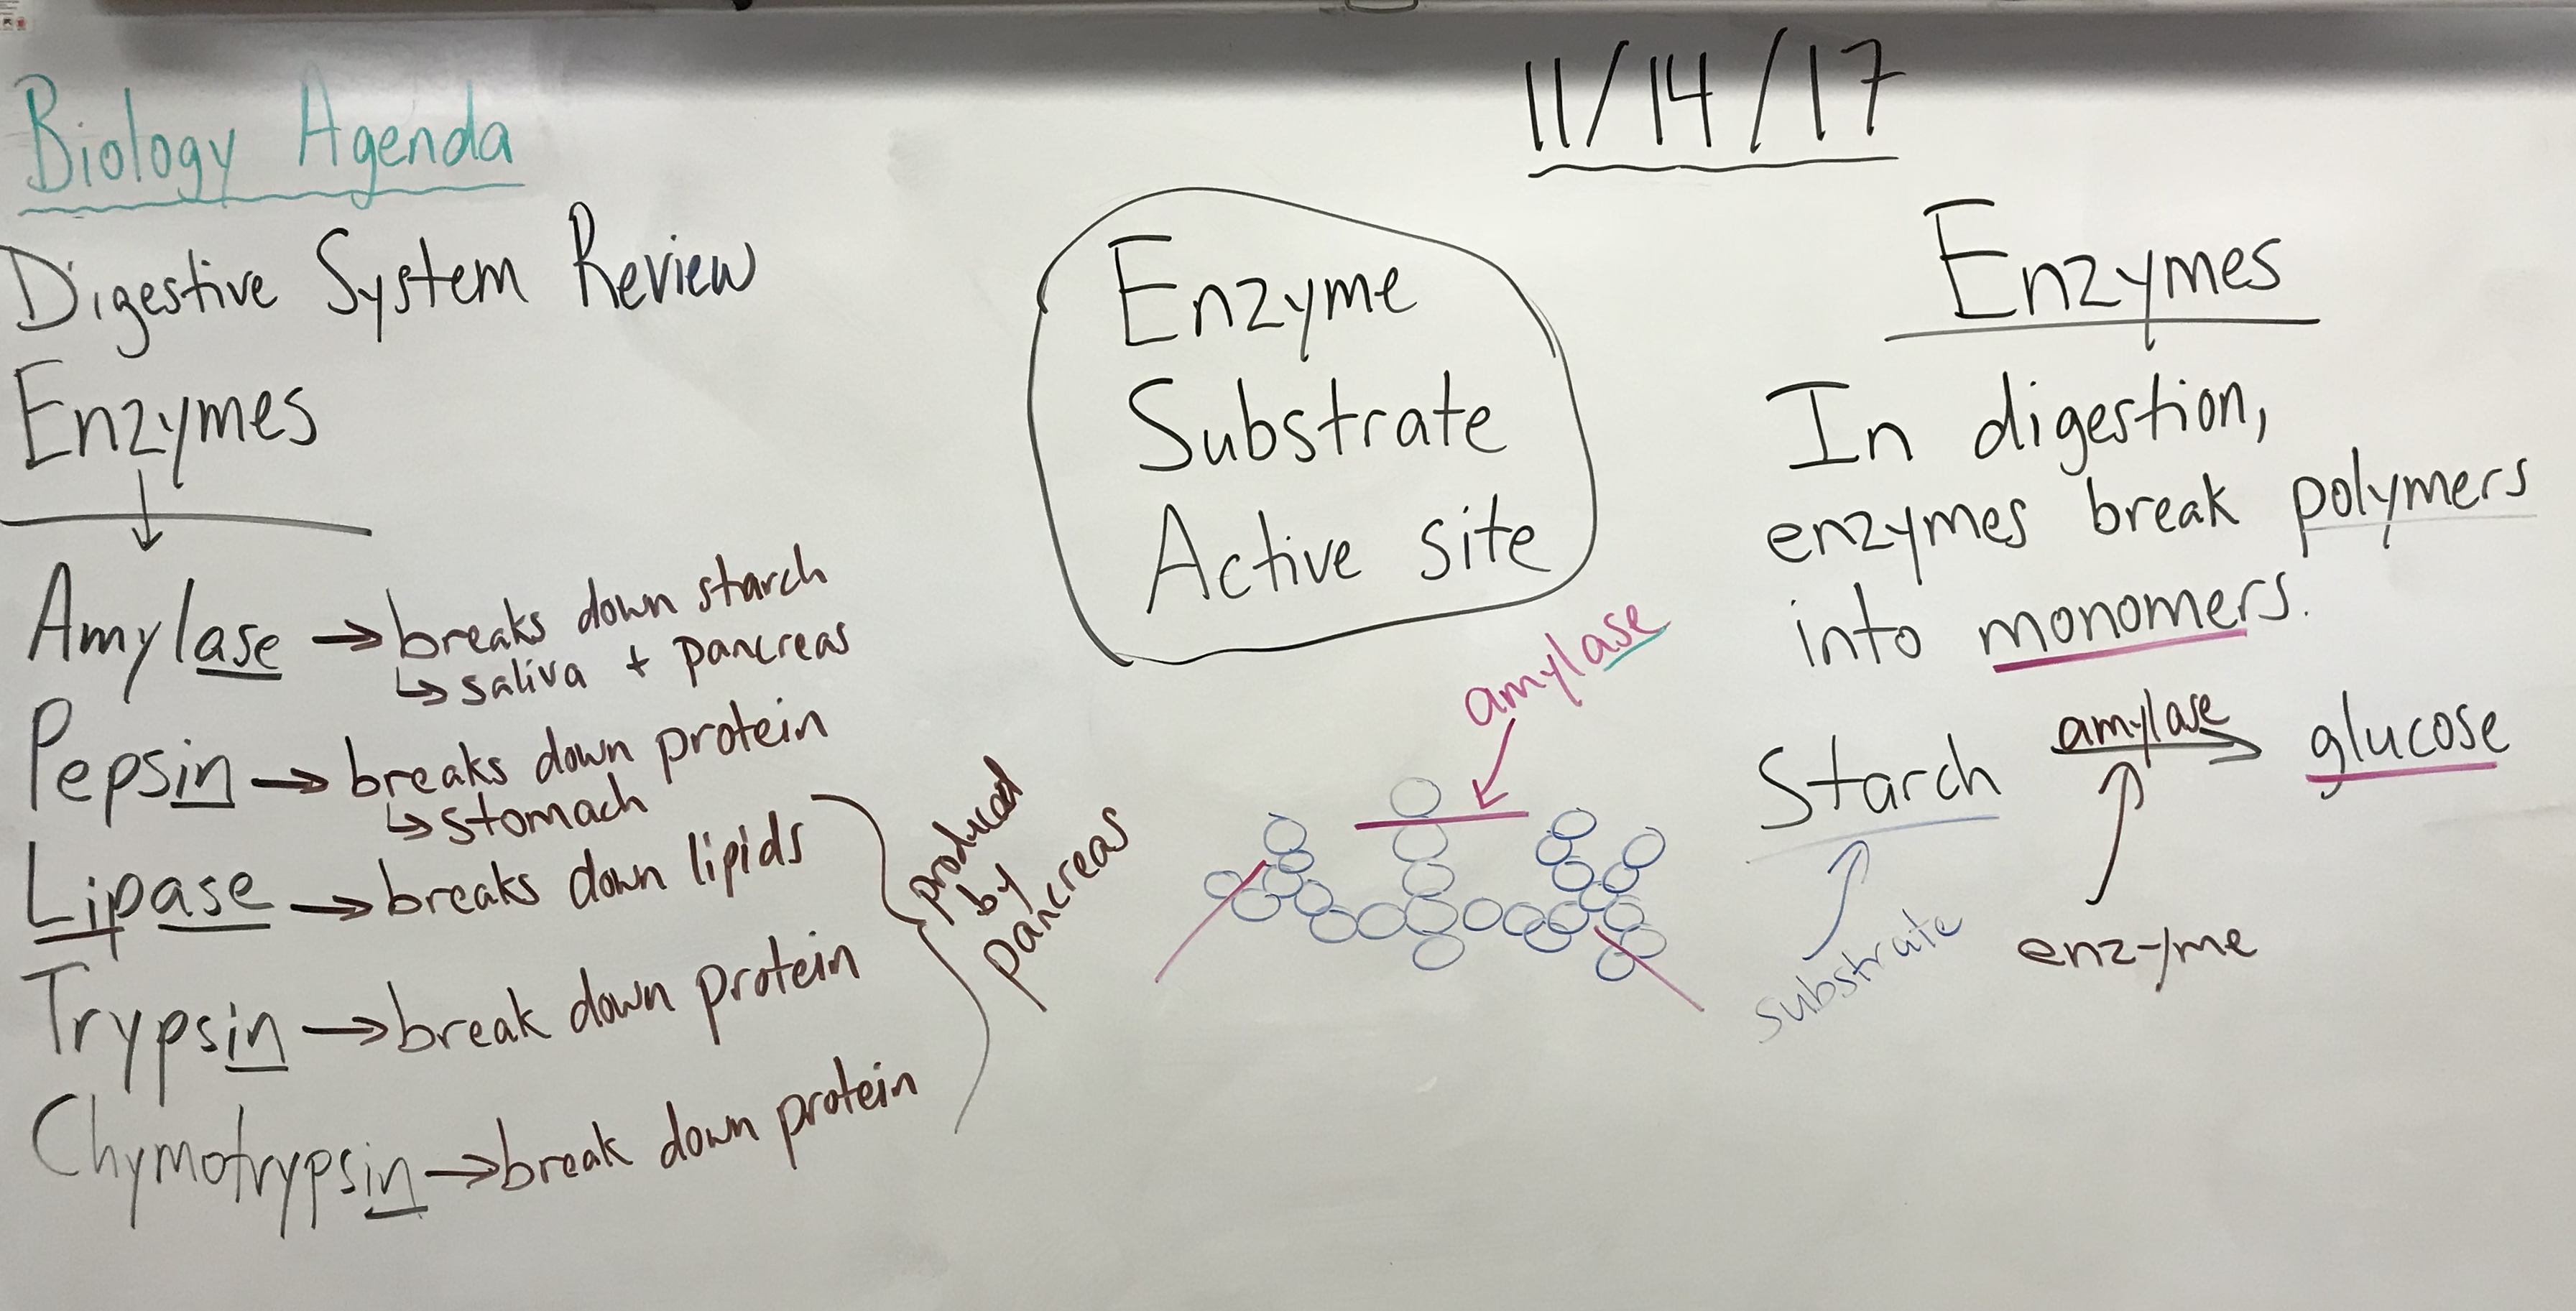 Biology Agenda
11/14/17
Digestive System Review
Enzymes
Amylase → breaks down starch
↳ saliva + pancreas
Pepsin → breaks down protein
↳ stomach
Lipase → breaks down lipids
Trypsin → break down protein
Chymotrypsin → break down protein
produced
by
pancreas
Enzyme
Substrate
Active site
amylase
Enzymes
In digestion,
enzymes break polymers
into monomers.
Starch amylase → glucose
substrate
enzyme